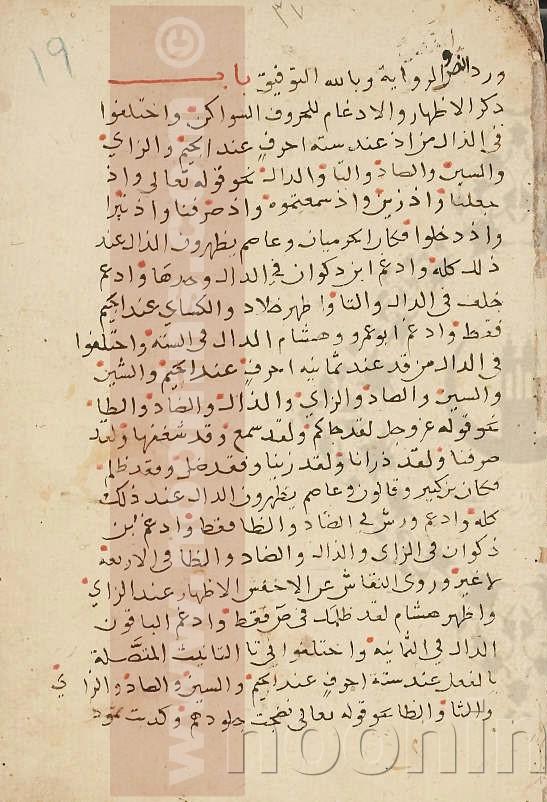 ٣٧
19
ورد النص والرواية وبالله التوفيق باب
ذكر الاظهار والادغام للحروف السواكن واختلفوا
في الذال من اذ عند ستة احرف عند الجيم والزاي
والسين والصاد والتا والدال نحو قوله تعالى واذ
جعلنا واذ زين واذ سمعتموه واذ صرفنا واذ تبرا
واذ دخلوا فكان الحرميان وعاصم يظهرون الذال عند
ذلك كله وادغم ابن ذكوان في الدال وحدها وادغم
خلف في الدال والتا واظهر خلاد والكساي عند الجيم
فقط وادغم ابو عمرو وهشام الذال في الستة واختلفوا
في الدال من قد عند ثمانية احرف عند الجيم والشين
والسين والصاد والزاي والذال والضاد والظا
نحو قوله عز وجل لقد جاكم ولقد سمع وقد شغفها ولقد
صرفنا ولقد ذرانا ولقد زينا وفقد ضل وفقد ظلم
فكان بن كثير وقالون وعاصم يظهرون الدال عند ذلك
كله وادغم ورش في الضاد والظا فقط وادغم بن
ذكوان في الزاي والذال والضاد والظا في الاربعة
لا غير وروى النقاش عن الاخفش الاظهار عند الزاي
واظهر هشام لقد ظلمك في ص فقط وادغم الباقون
الدال في الثمانية واختلفوا في تا التانيث المتصلة
بالفعل عند ستة احرف عند الجيم والسين والصاد والزاي
والثا والظا نحو قوله تعالى نضجت جلودهم وكذبت ثمود
noonin